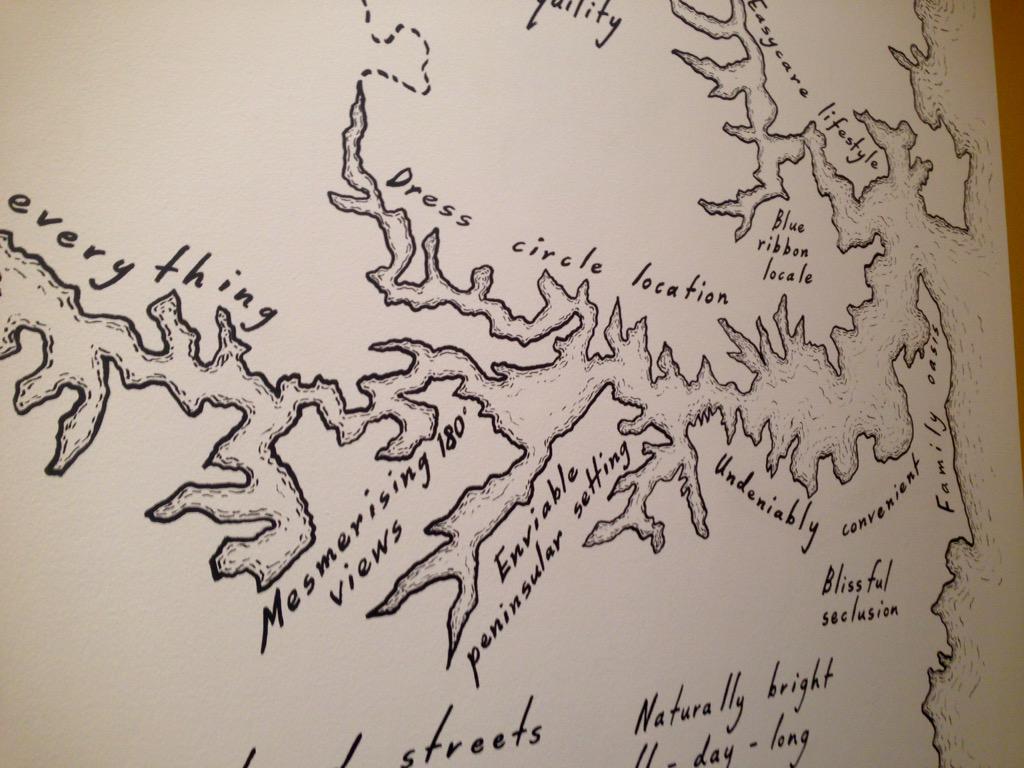 quility
Easycare lifestyle
every thing
Dress circle location
Blue
ribbon
locale
Family oasis
Mesmerising 180°
views
Enviable
peninsular setting
Undeniably convenient
Blissful
seclusion
streets
Naturally bright
- day - long